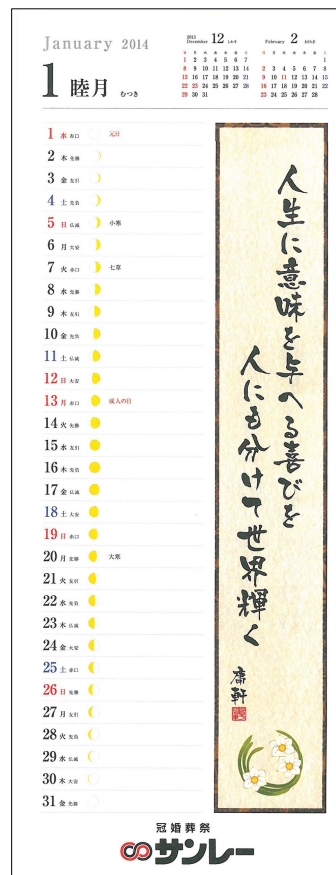 January 2014
1 睦月 むつき
2013 December 12 しわす
1 2 3 4 5 6 7
8 9 10 11 12 13 14
15 16 17 18 19 20 21
22 23 24 25 26 27 28
29 30 31
February 2 きさらぎ
1
2 3 4 5 6 7 8
9 10 11 12 13 14 15
16 17 18 19 20 21 22
23 24 25 26 27 28
1 水 赤口 元日
2 木 先勝
3 金 友引
4 土 先負
5 日 仏滅 小寒
6 月 大安
7 火 赤口 七草
8 水 先勝
9 木 友引
10 金 先負
11 土 仏滅
12 日 大安
13 月 赤口 成人の日
14 火 先勝
15 水 友引
16 木 先負
17 金 仏滅
18 土 大安
19 日 赤口
20 月 先勝 大寒
21 火 友引
22 水 先負
23 木 仏滅
24 金 大安
25 土 赤口
26 日 先勝
27 月 友引
28 火 先負
29 水 仏滅
30 木 大安
31 金 先勝
人生に意味を与へる喜びを
人にも分けて世界輝く
庸軒
冠婚葬祭
サンレー